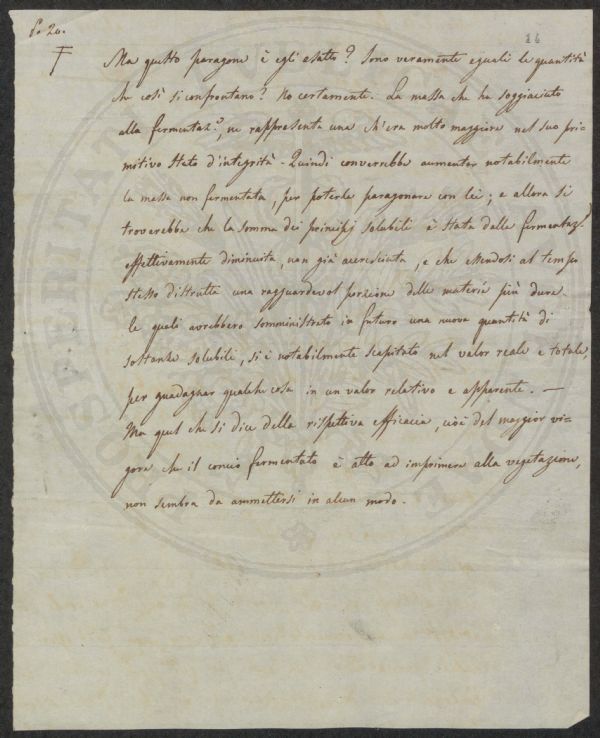 P. 20.
14
Ma questo paragone è egli esatto? Sono veramente eguali le quantità
che così si confrontano? No certamente. La massa che ha soggiaciuto
alla fermentaz.e, ne rappresenta una ch'era molto maggiore nel suo pri-
mitivo stato d'integrità. Quindi converrebbe aumentar notabilmente
la massa non fermentata, per poterla paragonare con lei; e allora si
troverebbe che la somma dei principj solubili è stata dalla fermentaz.e
effettivamente diminuita, non già accresciuta, e che essendosi al tempo
stesso distrutta una ragguardevol porzione delle materie più dure
le quali avrebbero somministrato in futuro una nuova quantità di
sostanze solubili, si è notabilmente scapitato nel valor reale e totale,
per guadagnar qualche cosa in un valor relativo e apparente. —
Ma quel che si dice della rispettiva efficacia, cioè del maggior vi-
gore che il concio fermentato è atto ad imprimere alla vegetazione,
non sembra da ammettersi in alcun modo.